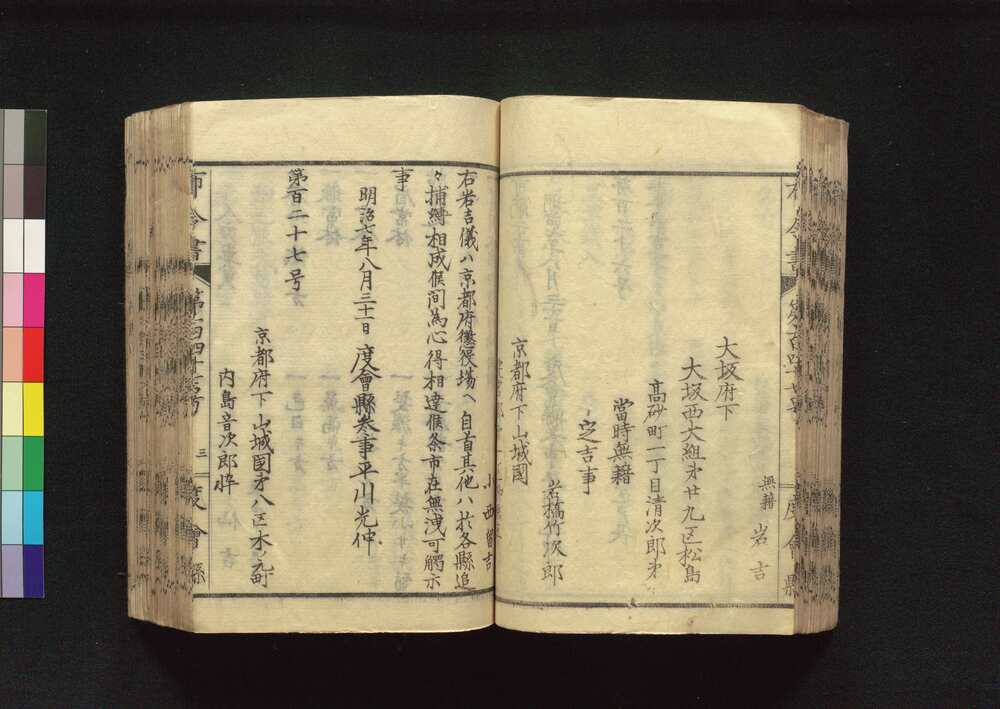 無籍
岩吉
大坂府下
大坂西大組第廿九区松島
高砂町一丁目清次郎弟
當時無籍
定吉事
岩橋竹次郎
京都府下山城國
小西留吉
右岩吉儀ハ京都府懲役場ヘ自首其他ハ於各縣追
々捕縛相成候间為心得相達候条市在無洩可觸示
事
明治七年八月三十一日 度會縣参事平川光伸
第百二十七号
京都府下山城國第八区木之町
内島音次郎悴
布令書 第百四十六号 三 度會縣